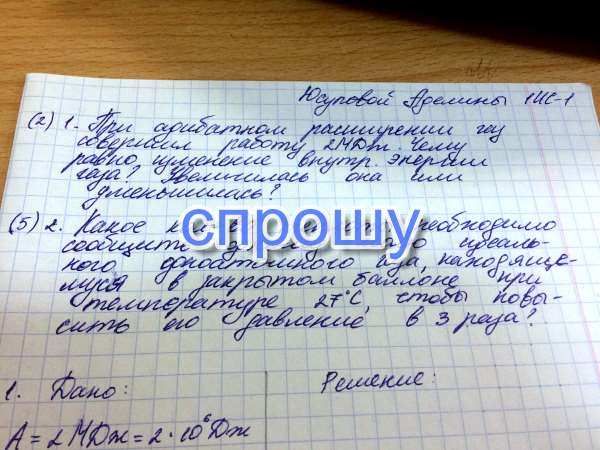 Юсуповой Аделины 1ИС-1
(2) 1. При адибатном расширении газ
совершил работу 2МДж. Чему
равно изменение внутр. энергии
газа? Увеличилась она или
уменьшилась?
(5) 2. Какое необходимо
сообщить идеаль-
ного одноатомного газа, находяще-
муся в закрытом баллоне при
температуре 27°C, чтобы повы-
сить его давление в 3 раза?
спрошу
1. Дано: Решение:
A = 2 МДж = 2 · 10⁶ Дж